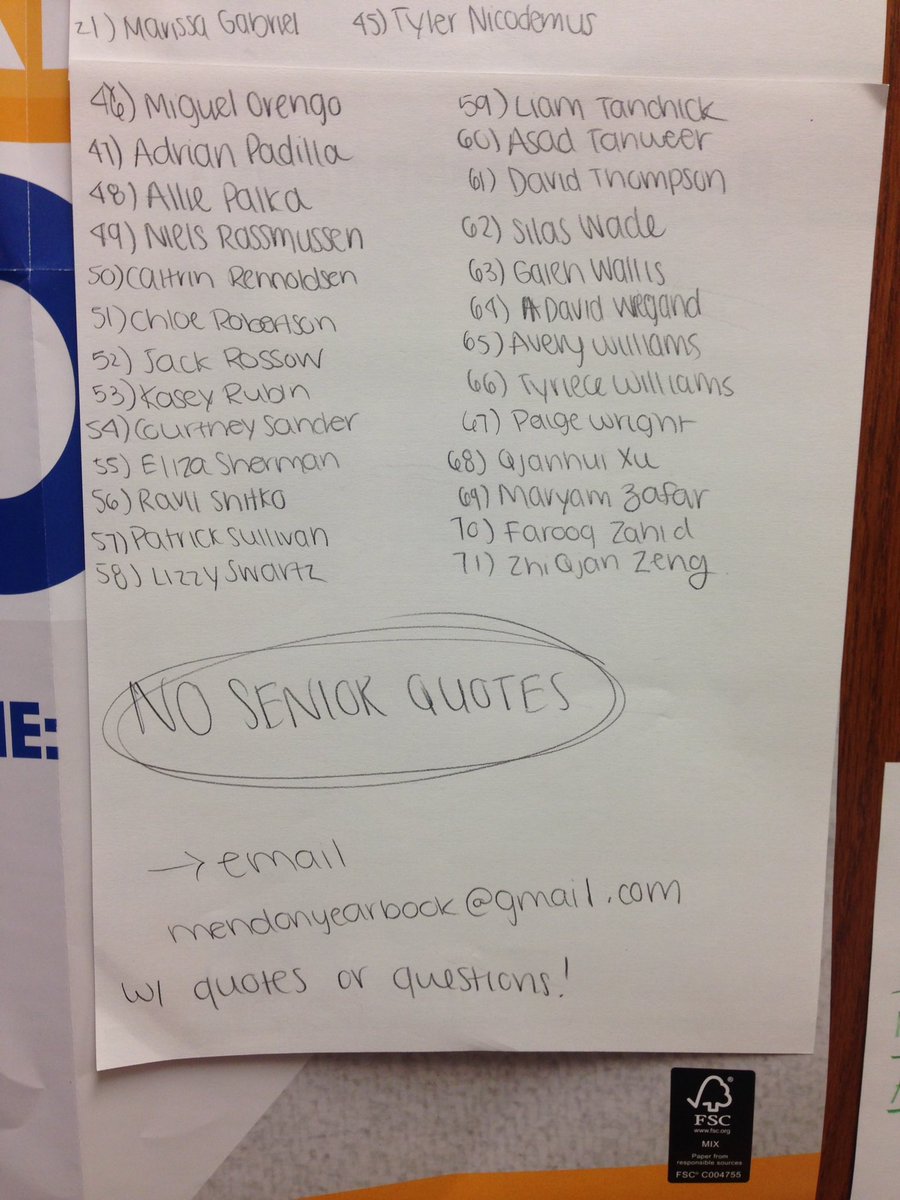 21) Marissa Gabriel 45) Tyler Nicodemus
46) Miguel Orengo
47) Adrian Padilla
48) Allie Palka
49) Niels Rassmussen
50) Caitrin Rennoldsen
51) Chloe Robertson
52) Jack Rossow
53) Kasey Rubin
54) Courtney Sander
55) Eliza Sherman
56) Ravil Shitko
57) Patrick Sullivan
58) Lizzy Swartz
59) Liam Tanchick
60) Asad Tanweer
61) David Thompson
62) Silas Wade
63) Galen Wallis
64) David Wiegand
65) Avery Williams
66) Tyriece Williams
67) Paige Wright
68) Qianhui Xu
69) Maryam Zafar
70) Farooq Zahid
71) ZhiQian Zeng
NO SENIOR QUOTES
→ email
mendonyearbook@gmail.com
w/ quotes or questions!
IE:
FSC
www.fsc.org
MIX
Paper from
responsible sources
FSC® C004755